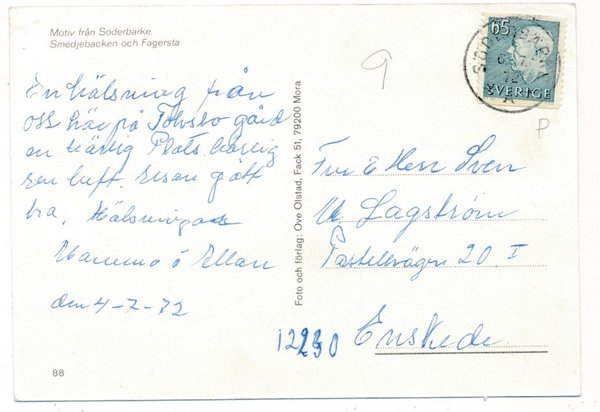 Motiv från Söderbarke
Smedjebacken och Fagersta
65
SVERIGE
En hälsning från
oss här på gård
en härlig Plats. härlig
ren luft. Resan gått
bra, Hälsningar
Mamma o Ellan
den 4-7-72
88
Foto och förlag: Ove Olstad, Fack 51, 79200 Mora
9
P
Fru & Herr Sven
Lagström
Pastellvägen 20 I
12230 Enskede